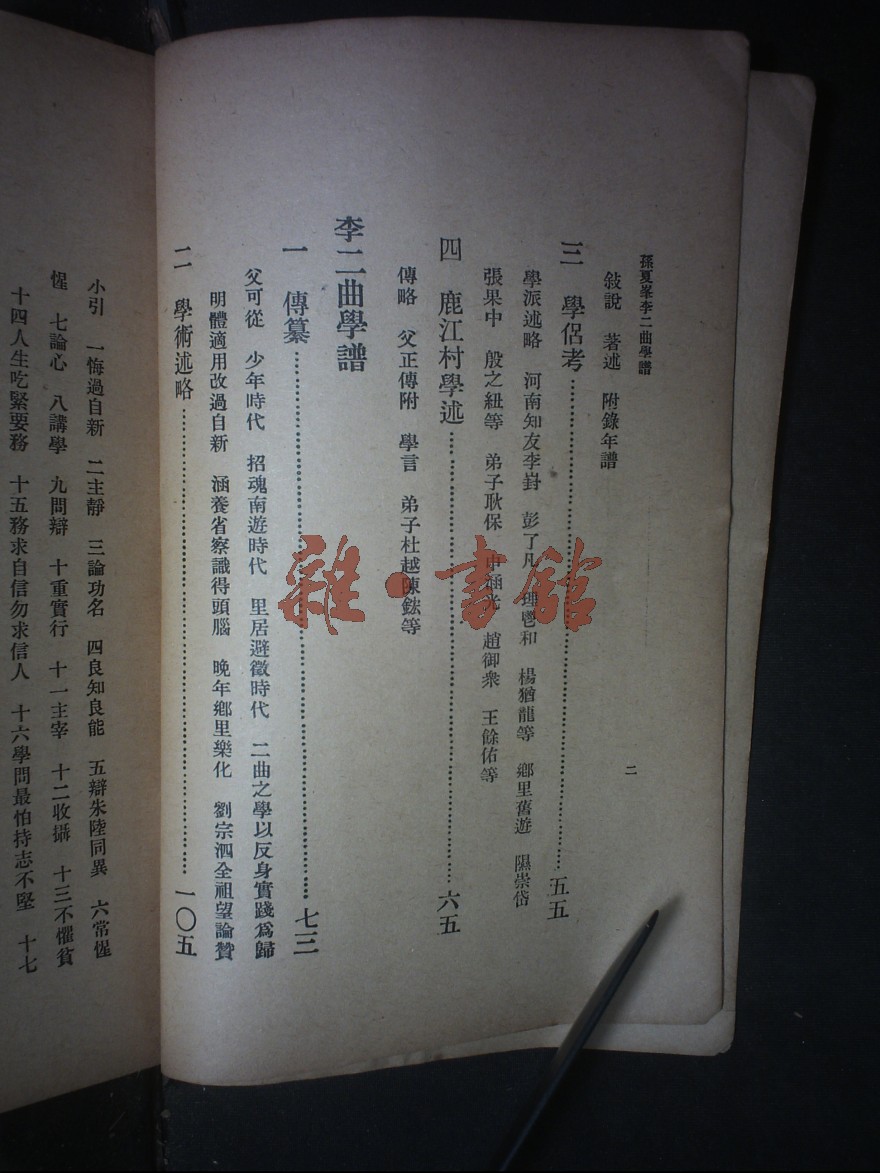 孫夏峯李二曲學譜
二
敍說　著述　附錄年譜
三　學侶考…………五五
學派述略　河南知友李崶　彭了凡　理鬯和　楊猶龍等　鄉里舊遊　隰崇岱
張果中　殷之紐等　弟子耿保　申涵光　趙御衆　王餘佑等
四　鹿江村學述…………六五
傳略　父正傳附　學言　弟子杜越陳鋐等
李二曲學譜
一　傳纂…………七三
父可從　少年時代　招魂南遊時代　里居避徵時代　二曲之學以反身實踐爲歸
明體適用改過自新　涵養省察識得頭腦　晚年鄉里樂化　劉宗泗全祖望論贊
二　學術述略…………一〇五
小引　一悔過自新　二主靜　三論功名　四良知良能　五辯朱陸同異　六常惺
惺　七論心　八講學　九問辯　十重實行　十一主宰　十二收攝　十三不懼貧
十四人生吃緊要務　十五務求自信勿求信人　十六學問最怕持志不堅　十七
雜·書館